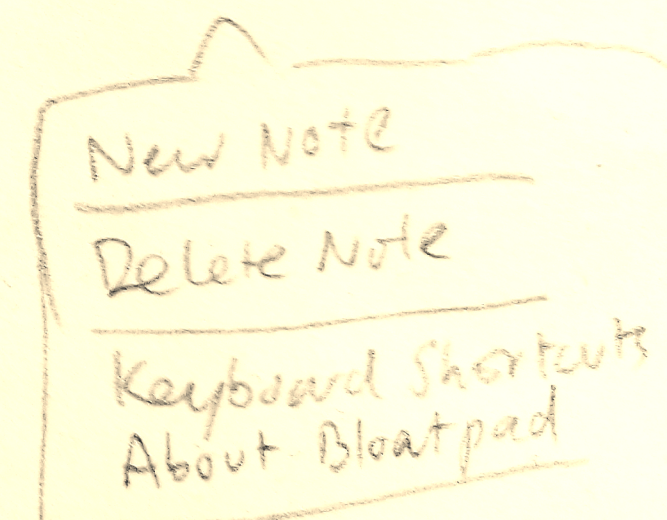 New Note
Delete Note
Keyboard Shortcuts
About Bloatpad